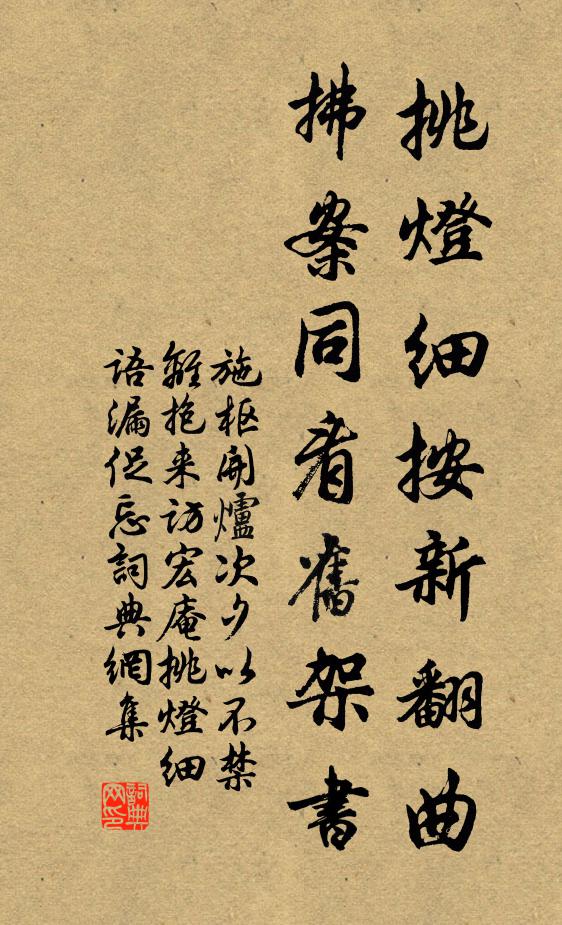 挑燈細按新翻曲
拂案同看舊架書
施枢開爐次夕以不禁
離抱来訪宏庵挑燈細
語漏促忘詞典網集
詞典网印